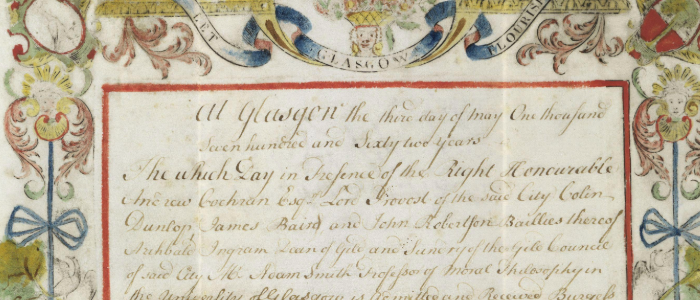 LET GLASGOW FLOURISH
At Glasgow the third day of May One thousand
Seven hundred and Sixty two years
The which Day in Presence of the Right Honourable
Andrew Cochran Esqr. Lord Provost of the said City Colin
Dunlop James Baird and John Robertson Baillies thereof
Archbald Ingram Dean of Gild and Sundry of the Gild Council
of said City Mr. Adam Smith Professor of Moral Philosophy in
the University of Glasgow is Admitted and Received Burgess